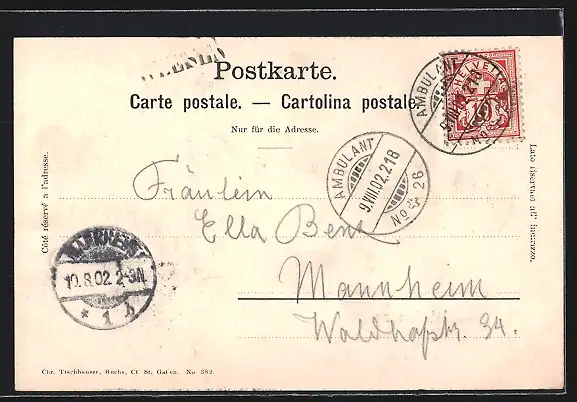 Postkarte.
Carte postale. — Cartolina postale.
Nur für die Adresse.
Côté réservé à l'adresse.
Lato riservato all' indirizzo.
HELVETIA
AMBULANT
9.VIII.02.218
No 26
AMBULANT
9.VIII.02.218
No 26
Fräulein
Ella Benz
Mannheim
34.
MANNHEIM
10.8.02. 2-3N.
* 1 h
Chr. Tischhauser, Buchs, Ct. St. Gallen. No 382